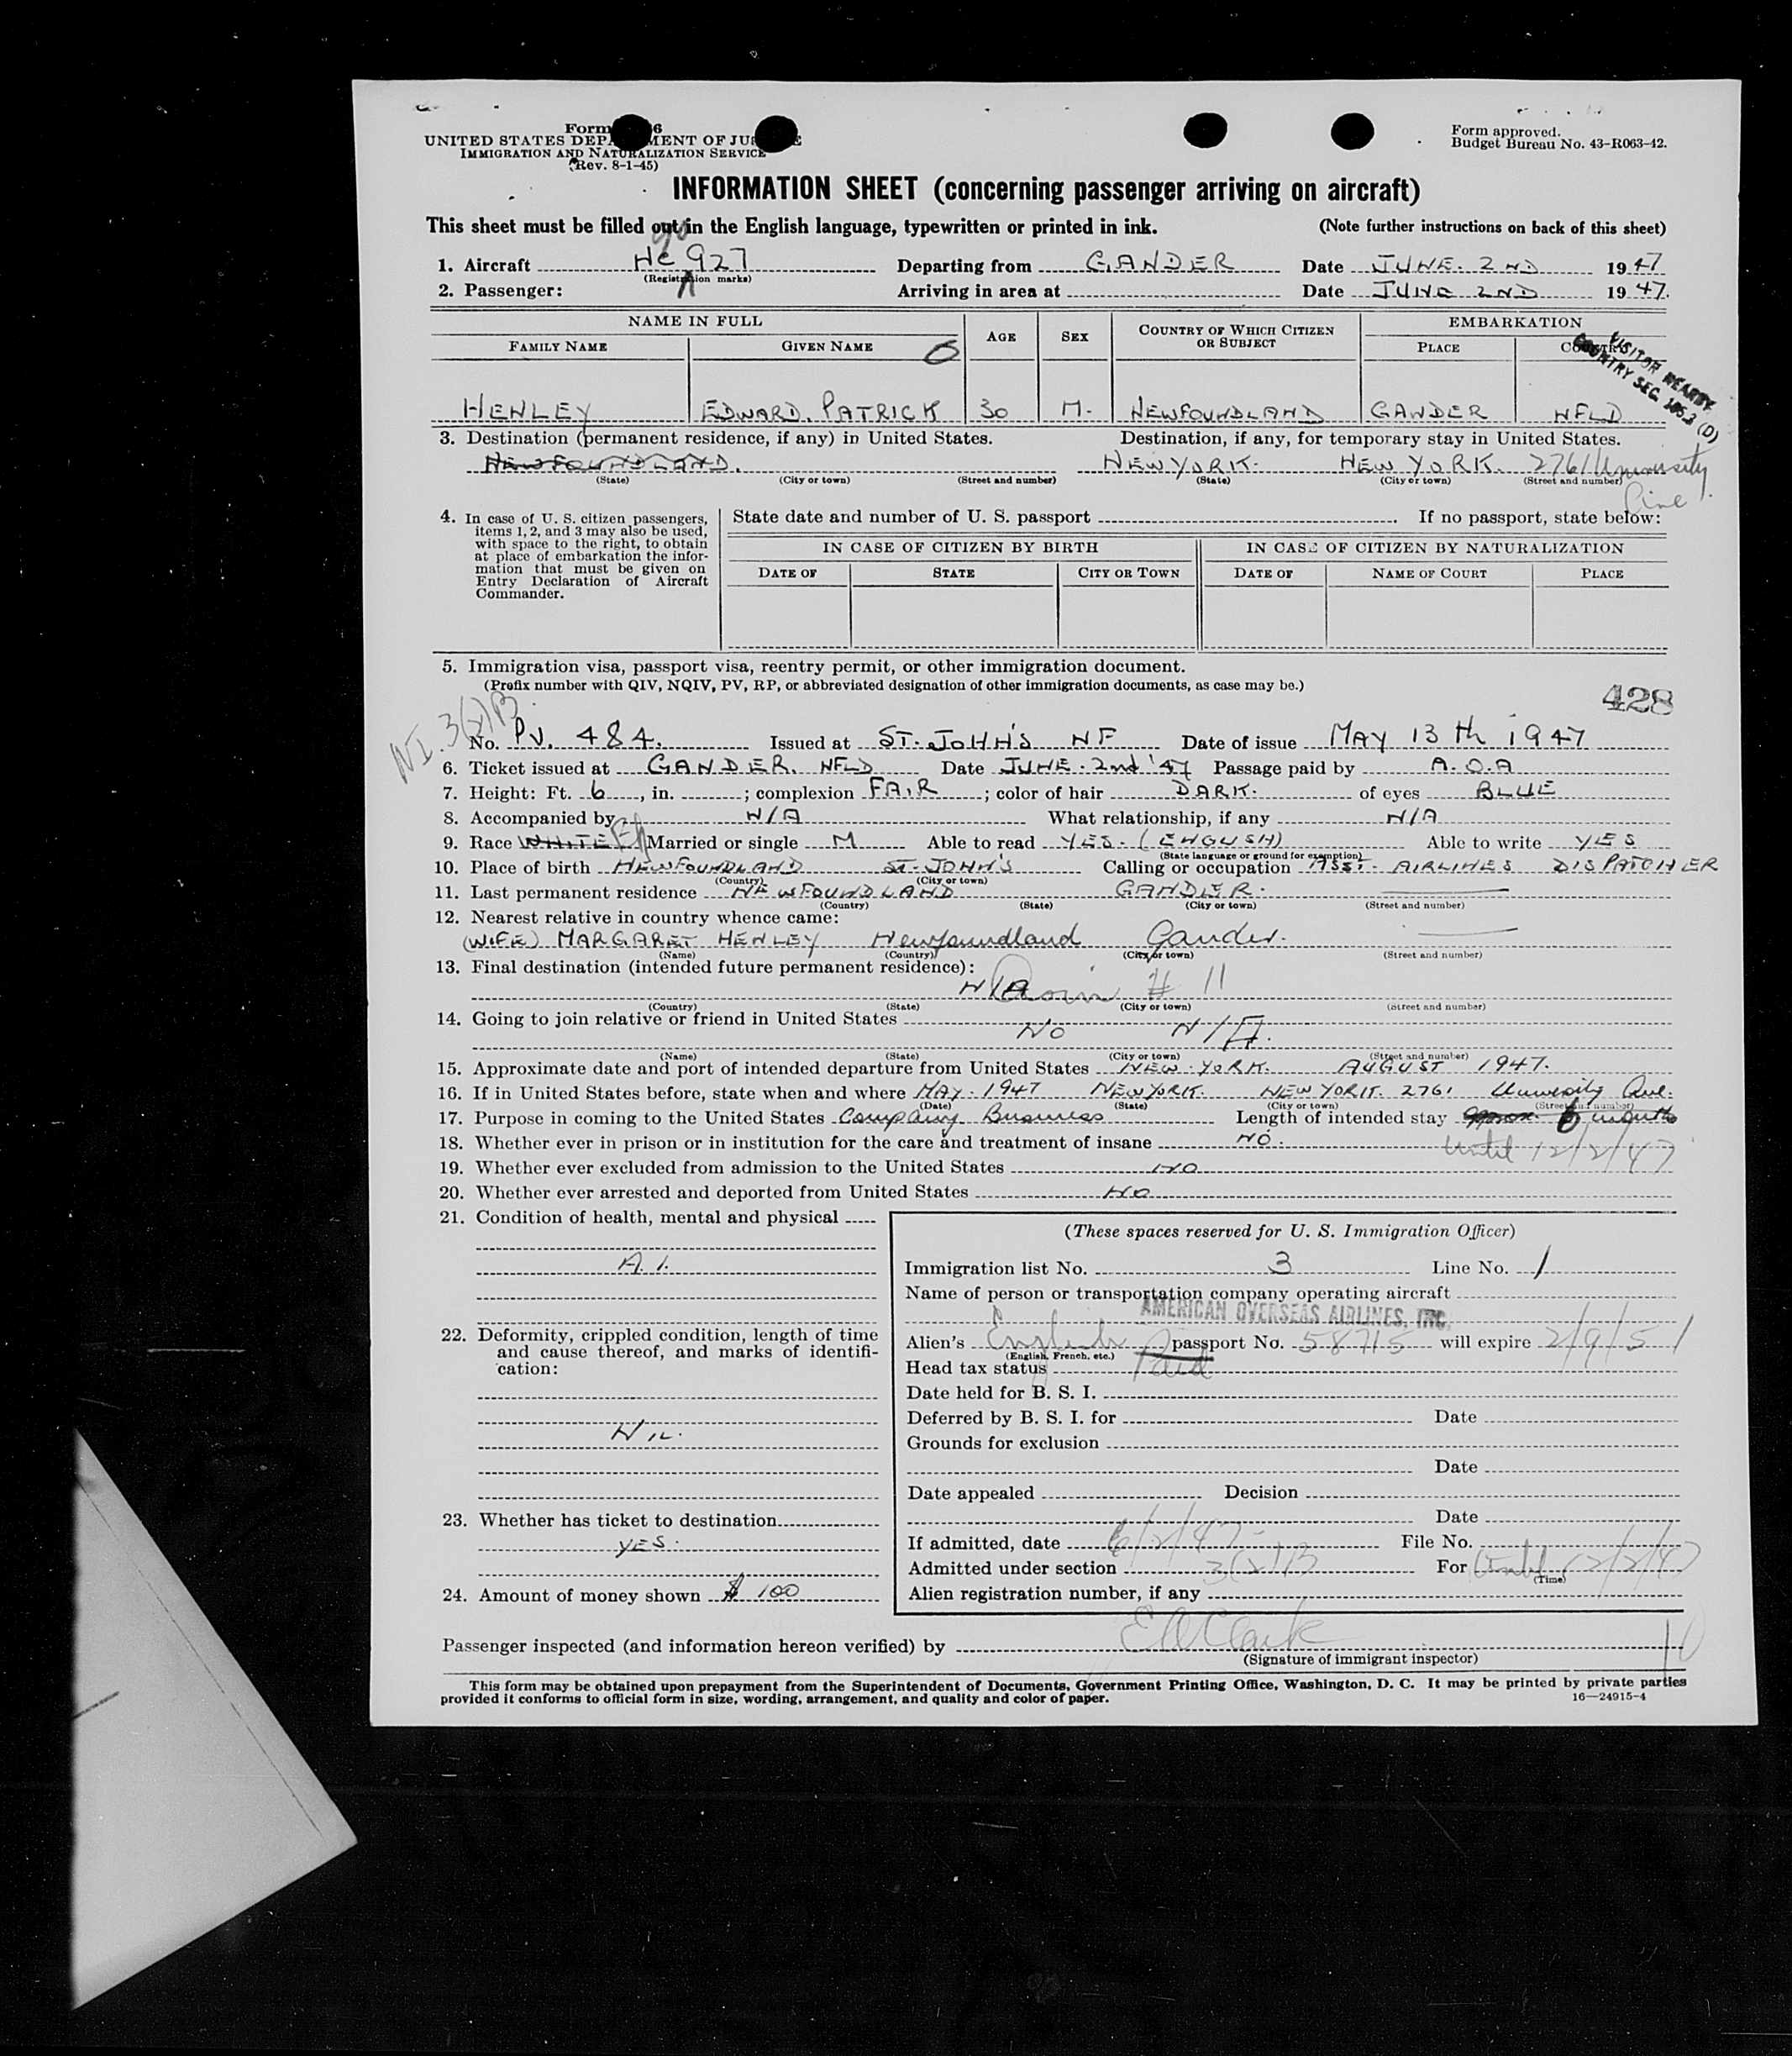 Form 6
UNITED STATES DEPARTMENT OF JUSTICE
IMMIGRATION AND NATURALIZATION SERVICE
(Rev. 8-1-45)
Form approved.
Budget Bureau No. 43-R063-42.
INFORMATION SHEET (concerning passenger arriving on aircraft)
This sheet must be filled out in the English language, typewritten or printed in ink. (Note further instructions on back of this sheet)
90
1. Aircraft HC 927 Departing from GANDER Date JUNE. 2ND 1947
(Registration marks)
2. Passenger: Arriving in area at Date JUNE 2ND 1947.
NAME IN FULL AGE SEX COUNTRY OF WHICH CITIZEN OR SUBJECT EMBARKATION
FAMILY NAME GIVEN NAME PLACE COUNTRY
VISITOR NEARBY
COUNTRY SEC. (D)
HENLEY EDWARD. PATRICK 30 M. NEWFOUNDLAND GANDER NFLD
3. Destination (permanent residence, if any) in United States. Destination, if any, for temporary stay in United States.
NEWFOUNDLAND. NEW YORK. NEW YORK. 2761 University
(State) (City or town) (Street and number) (State) (City or town) (Street and number)
4. In case of U. S. citizen passengers, items 1, 2, and 3 may also be used, with space to the right, to obtain at place of embarkation the information that must be given on Entry Declaration of Aircraft Commander.
State date and number of U. S. passport If no passport, state below:
IN CASE OF CITIZEN BY BIRTH IN CASE OF CITIZEN BY NATURALIZATION
DATE OF STATE CITY OR TOWN DATE OF NAME OF COURT PLACE
5. Immigration visa, passport visa, reentry permit, or other immigration document.
(Prefix number with QIV, NQIV, PV, RP, or abbreviated designation of other immigration documents, as case may be.)
428
NI. 3(2)B.
No. PV. 484. Issued at ST. JOHN'S NF Date of issue MAY 13th 1947
6. Ticket issued at GANDER. NFLD Date JUNE. 2nd '47 Passage paid by A.O.A
7. Height: Ft. 6, in. ; complexion FAIR ; color of hair DARK. of eyes BLUE
8. Accompanied by N/A What relationship, if any N/A
9. Race WHITE Married or single M Able to read YES. (ENGLISH) Able to write YES
(State language or ground for exemption)
10. Place of birth NEWFOUNDLAND ST. JOHN'S Calling or occupation ASST. AIRLINES DISPATCHER
(Country) (City or town)
11. Last permanent residence NEWFOUNDLAND GANDER.
(Country) (State) (City or town) (Street and number)
12. Nearest relative in country whence came:
(WIFE) MARGARET HENLEY Newfoundland Gander.
(Name) (Country) (City or town) (Street and number)
13. Final destination (intended future permanent residence):
N/A # 11
(Country) (State) (City or town) (Street and number)
14. Going to join relative or friend in United States
NO N/A.
(Name) (State) (City or town) (Street and number)
15. Approximate date and port of intended departure from United States NEW YORK. AUGUST 1947.
16. If in United States before, state when and where MAY. 1947 NEW YORK. NEW YORK. 2761 University Ave.
(Date) (State) (City or town) (Street and number)
17. Purpose in coming to the United States Company Business Length of intended stay approx. 6 months
18. Whether ever in prison or in institution for the care and treatment of insane NO.
until 12/2/47
19. Whether ever excluded from admission to the United States NO
20. Whether ever arrested and deported from United States NO
21. Condition of health, mental and physical
A.1.
22. Deformity, crippled condition, length of time and cause thereof, and marks of identification:
NIL.
23. Whether has ticket to destination
YES.
24. Amount of money shown $ 100
(These spaces reserved for U. S. Immigration Officer)
Immigration list No. 3 Line No. 1
Name of person or transportation company operating aircraft
AMERICAN OVERSEAS AIRLINES, INC.
Alien's English passport No. 58715 will expire 2/9/51
(English, French, etc.)
Head tax status Paid
Date held for B. S. I.
Deferred by B. S. I. for Date
Grounds for exclusion
Date
Date appealed Decision
Date
If admitted, date 6/2/47 File No.
Admitted under section 3(2)B For Until 12/2/47
(Time)
Alien registration number, if any
Passenger inspected (and information hereon verified) by E A Clark
(Signature of immigrant inspector)
10
This form may be obtained upon prepayment from the Superintendent of Documents, Government Printing Office, Washington, D. C. It may be printed by private parties
provided it conforms to official form in size, wording, arrangement, and quality and color of paper. 16—24915-4